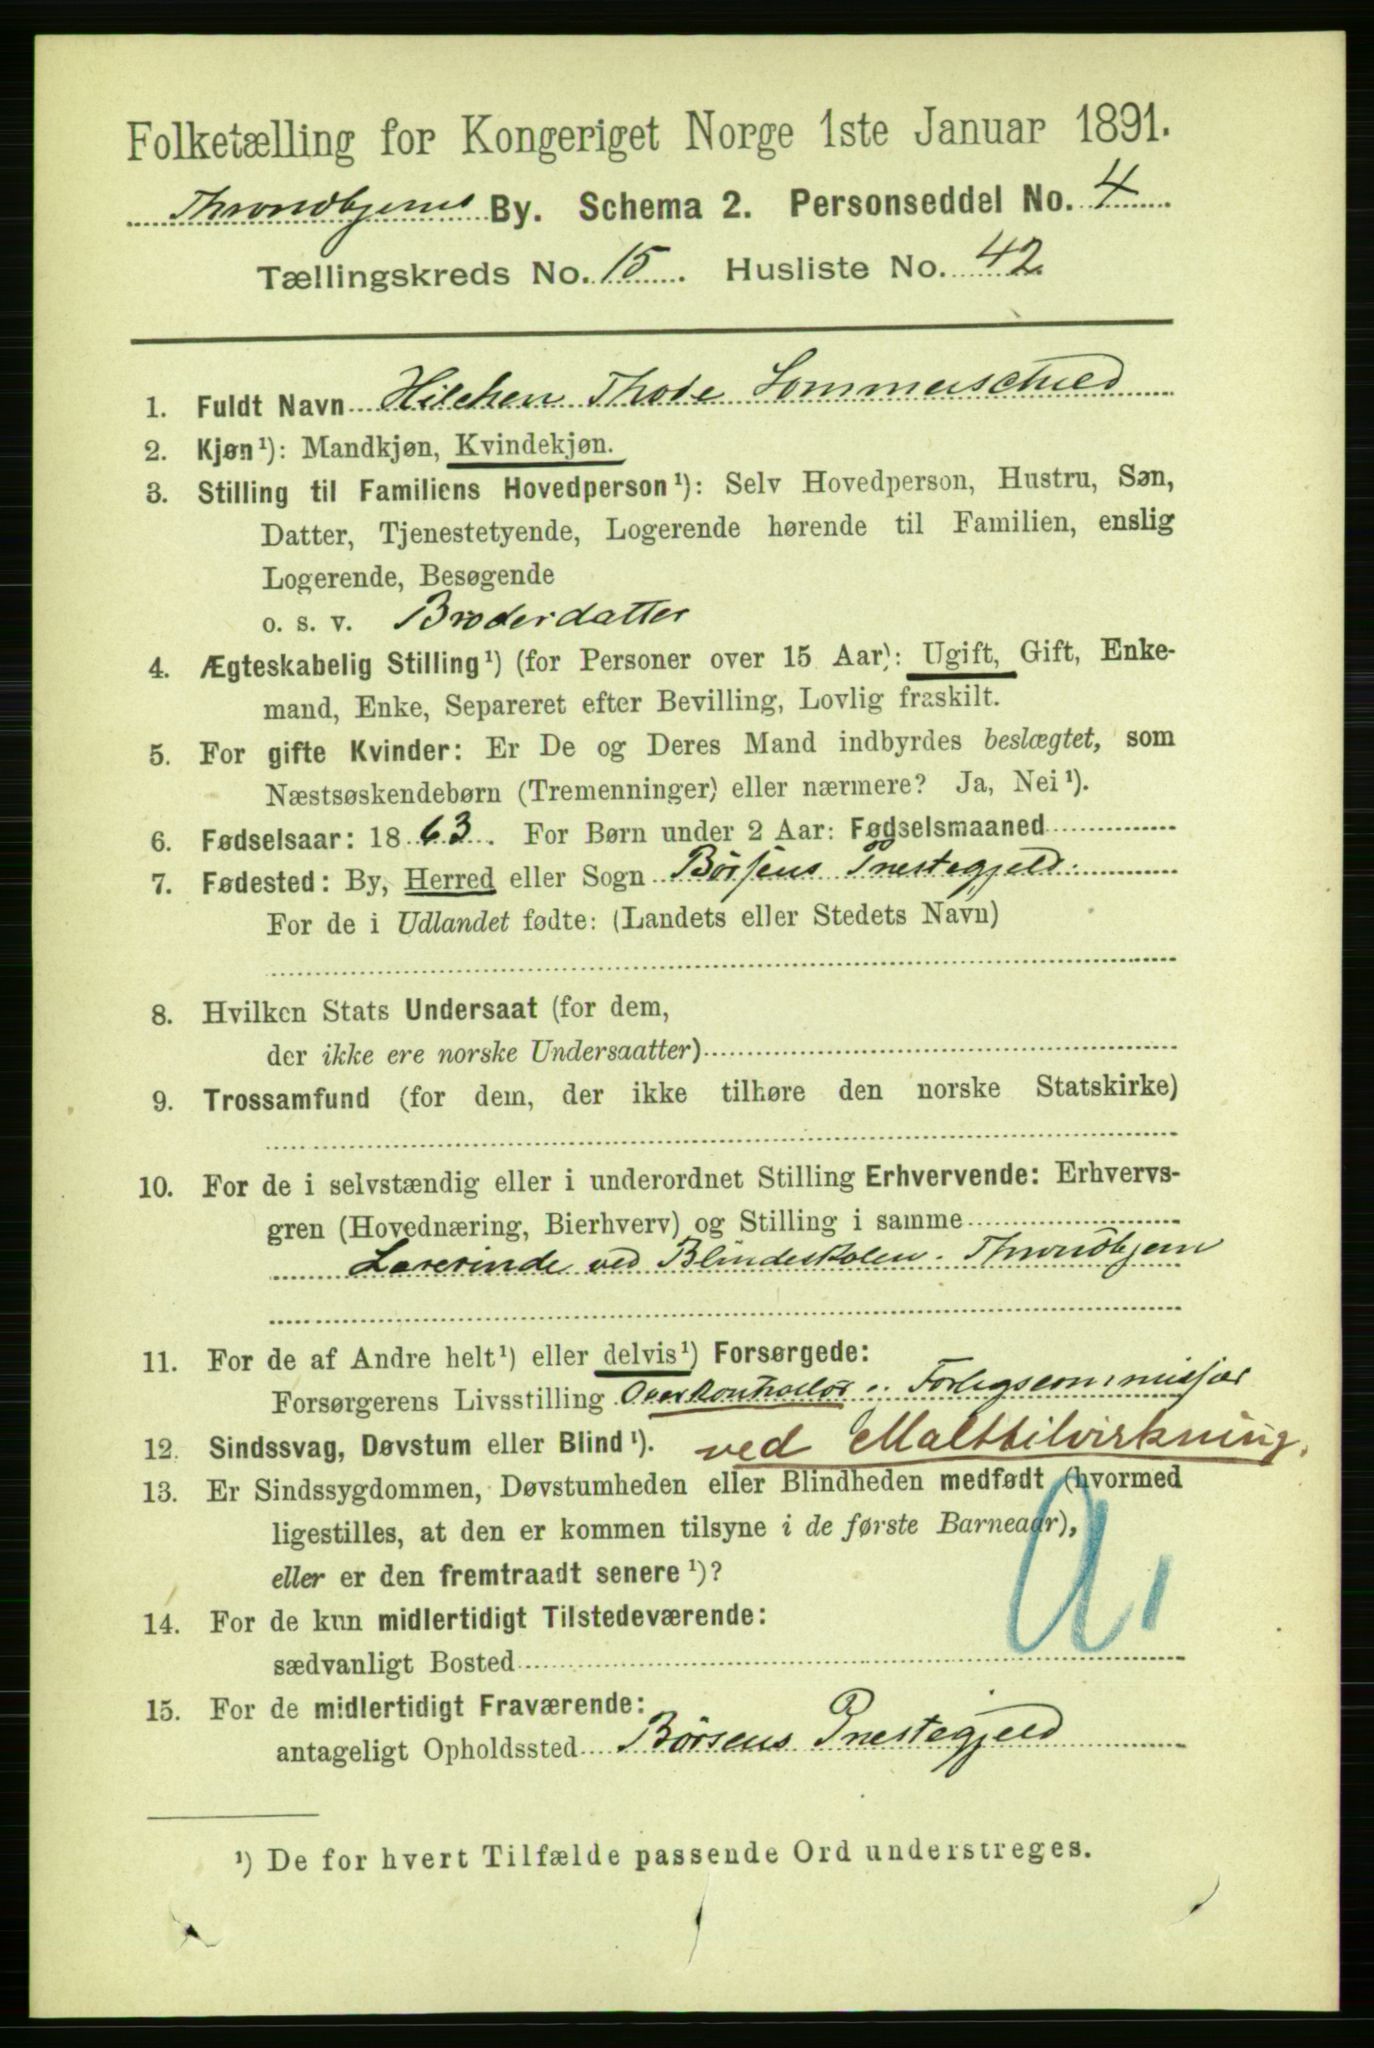 Folketælling for Kongeriget Norge 1ste Januar 1891.
Throndhjems By. Schema 2. Personseddel No. 4
Tællingskreds No. 15. Husliste No. 42
1. Fuldt Navn Hilchen Thode Sommerschield
2. Kjøn¹): Mandkjøn, Kvindekjøn.
3. Stilling til Familiens Hovedperson¹): Selv Hovedperson, Hustru, Søn,
Datter, Tjenestetyende, Logerende hørende til Familien, enslig
Logerende, Besøgende
o. s. v. Broderdatter
4. Ægteskabelig Stilling¹) (for Personer over 15 Aar): Ugift, Gift, Enke-
mand, Enke, Separeret efter Bevilling, Lovlig fraskilt.
5. For gifte Kvinder: Er De og Deres Mand indbyrdes beslægtet, som
Næstsøskendebørn (Tremenninger) eller nærmere? Ja, Nei¹).
6. Fødselsaar: 1863. For Børn under 2 Aar: Fødselsmaaned
7. Fødested: By, Herred eller Sogn Børsens Prestegjeld.
For de i Udlandet fødte: (Landets eller Stedets Navn)
8. Hvilken Stats Undersaat (for dem,
der ikke ere norske Undersaatter)
9. Trossamfund (for dem, der ikke tilhøre den norske Statskirke)
10. For de i selvstændig eller i underordnet Stilling Erhvervende: Erhvervs-
gren (Hovednæring, Bierhverv) og Stilling i samme
Lærerinde ved Blindeskolen. Throndhjem
11. For de af Andre helt¹) eller delvis¹) Forsørgede:
Forsørgerens Livsstilling Overkontrollør .. Forligscommissær
12. Sindssvag, Døvstum eller Blind¹). ved Malttilvirkning.
13. Er Sindssygdommen, Døvstumheden eller Blindheden medfødt (hvormed
ligestilles, at den er kommen tilsyne i de første Barneaar),
eller er den fremtraadt senere¹)?
14. For de kun midlertidigt Tilstedeværende:
sædvanligt Bosted
15. For de midlertidigt Fraværende:
antageligt Opholdssted Børsens Prestegjeld
¹) De for hvert Tilfælde passende Ord understreges.